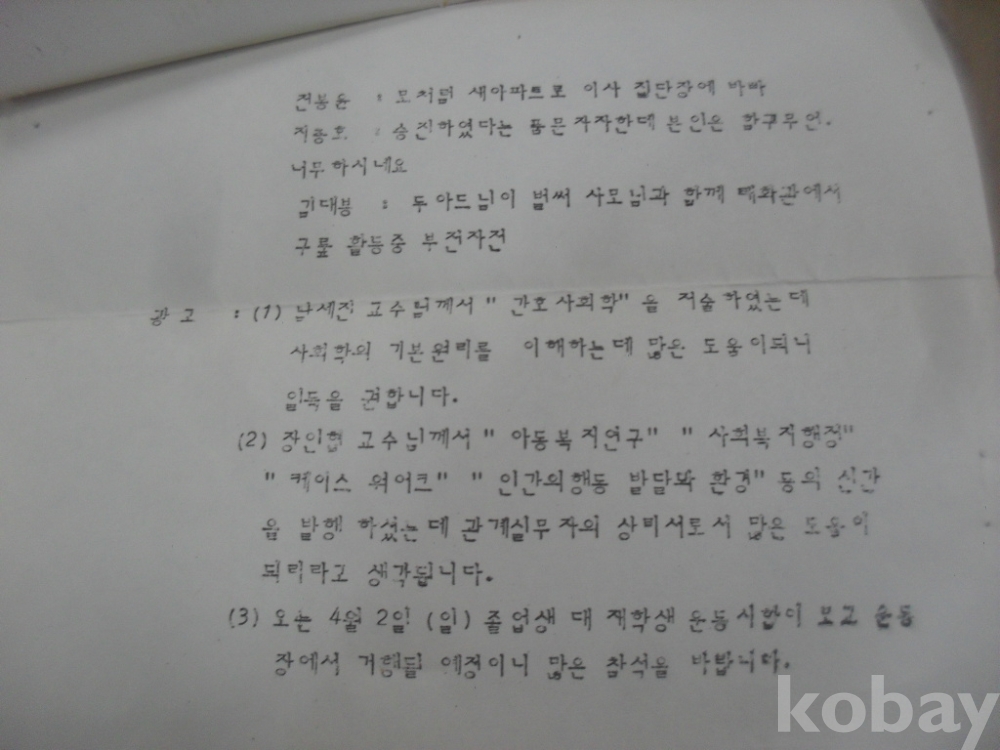 전봉윤 : 모처럼 새아파트로 이사 집단장에 바빠
지종호 : 승진하였다는 풍문 자자한데 본인은 함구무언.
너무하시네요
김대봉 : 두아드님이 벌써 사모님과 함께 태화관에서
구룹 활동중 부전자전
광고 : (1) 남세진 교수님께서 " 간호사회학" 을 저술하였는데
사회학의 기본원리를 이해하는데 많은 도움이되니
일독을 권합니다.
(2) 장인협 교수님께서 " 아동복지연구" " 사회복지행정"
" 케이스 워어크" " 인간의행동 발달과 환경" 등의 신간
을 발행 하셨는데 관계실무자의 상비서로서 많은 도움이
되리라고 생각됩니다.
(3) 오는 4월 2일 (일) 졸업생 대 재학생 운동시합이 모교 운동
장에서 거행될 예정이니 많은 참석을 바랍니다.
kobay